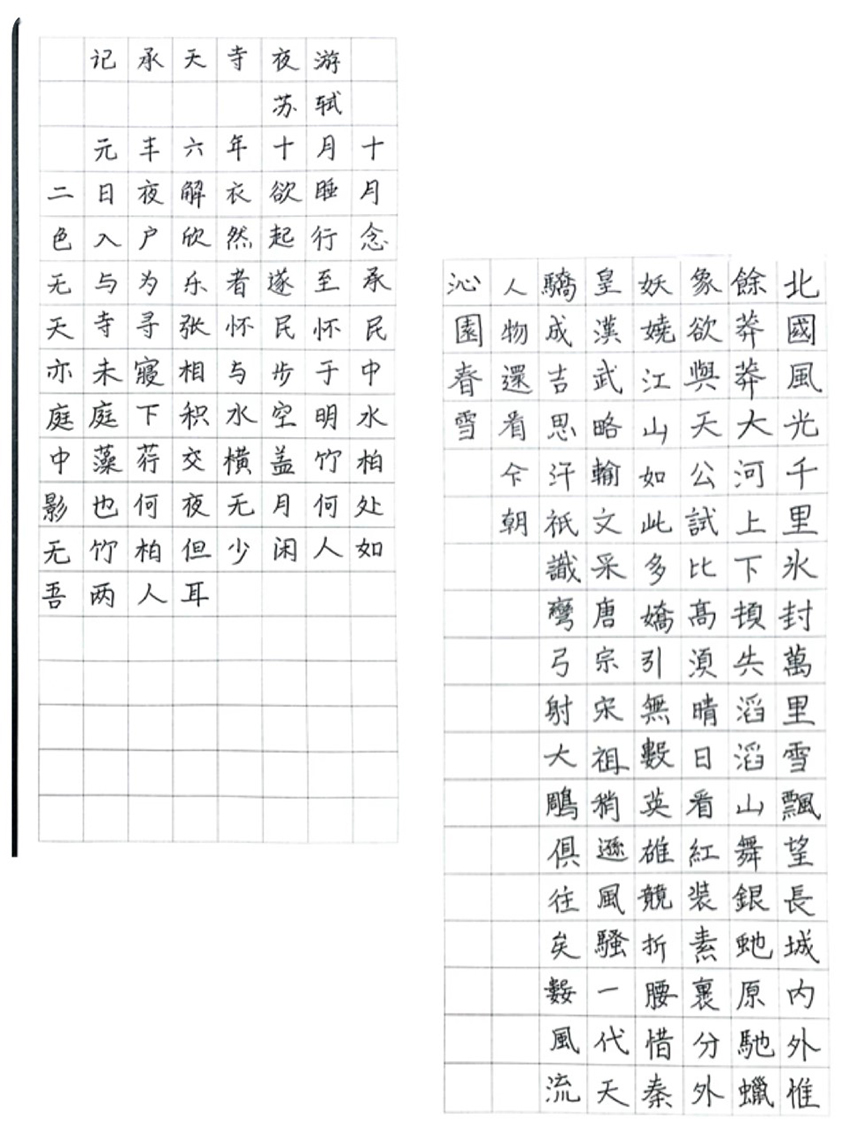 记承天寺夜游
苏轼
元丰六年十月十
二日夜解衣欲睡月
色入户欣然起行念
无与为乐者遂至承
天寺寻张怀民怀民
亦未寢相与步于中
庭庭下积水空明水
中藻荇交横盖竹柏
影也何夜无月何处
无竹柏但少闲人如
吾两人耳
北國風光千里氷封萬里雪飄望長城内外惟
餘莽莽大河上下頓失滔滔山舞銀虵原馳蠟
象欲與天公試比高須晴日看紅裝素裹分外
妖嬈江山如此多嬌引無數英雄競折腰惜秦
皇漢武略輸文采唐宗宋祖稍遜風騷一代天
驕成吉思汗祇識彎弓射大鵰俱往矣數風流
人物還看今朝
沁園春雪